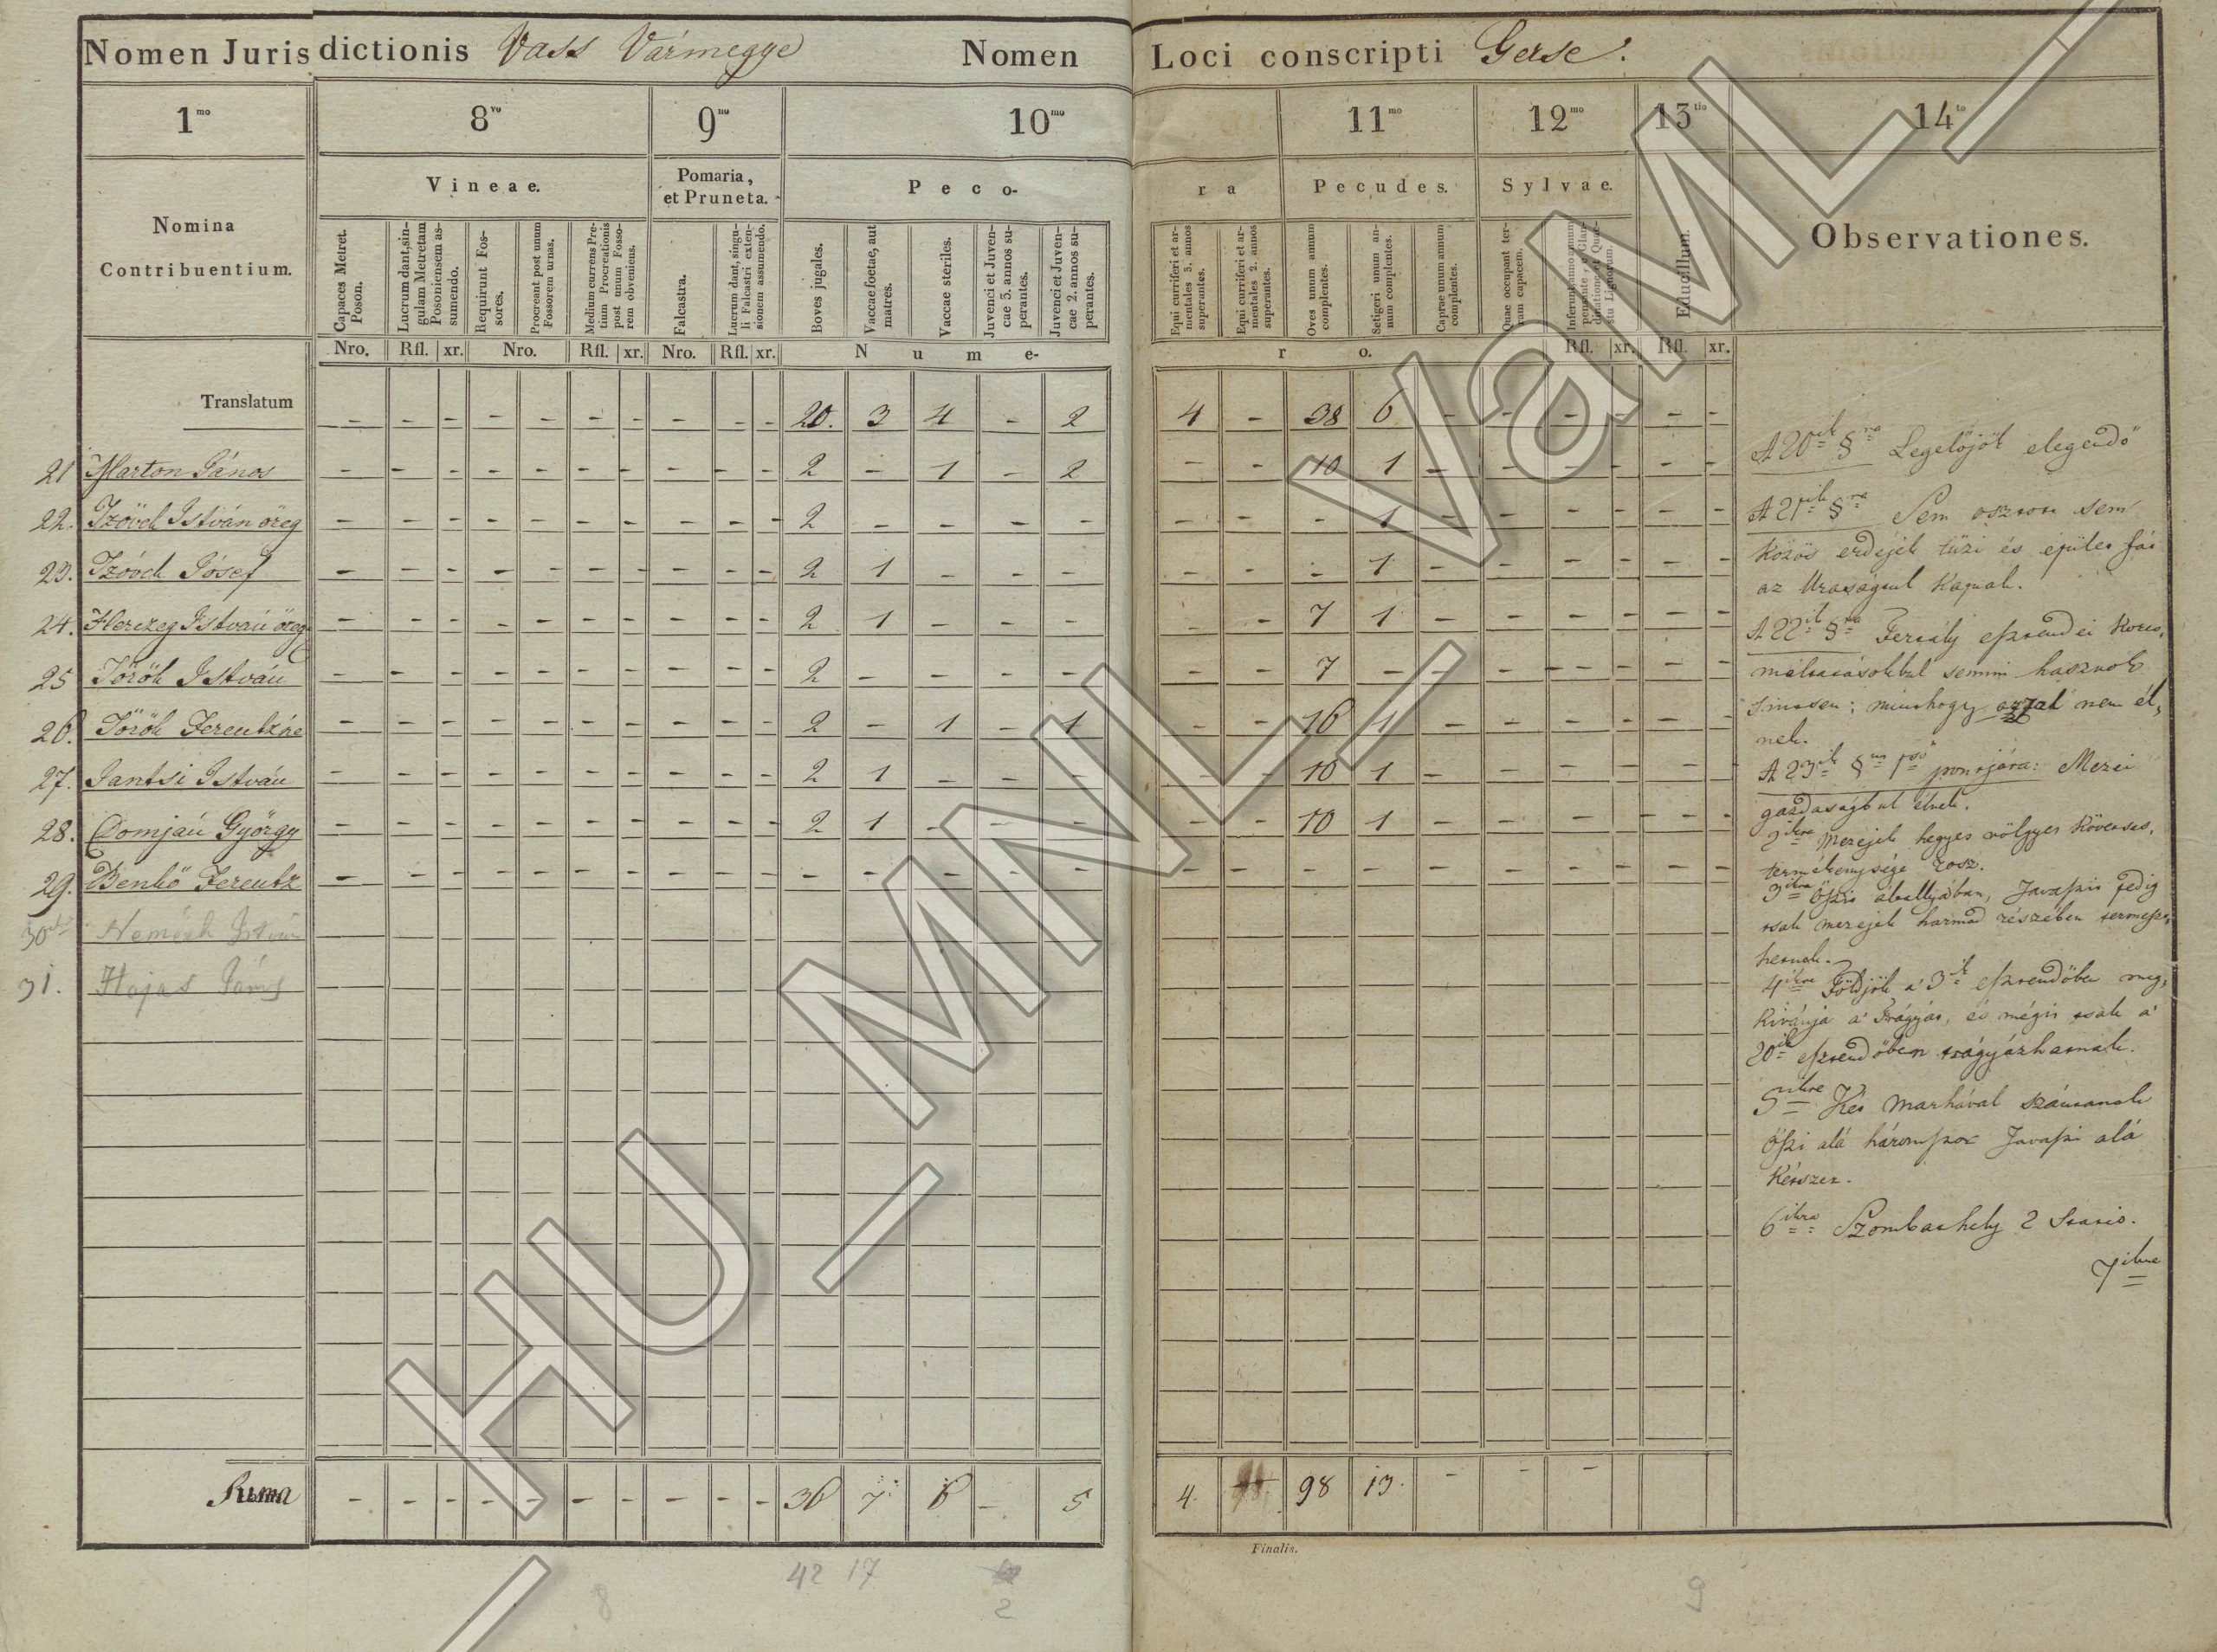 Nomen Jurisdictionis Vass Vármegye Nomen Loci conscripti Gerse.
1mo 8vo 9no 10mo 11mo 12mo 13tio 14to
Nomina Contribuentium.
Vineae.
Pomaria, et Pruneta.
Peco-
ra
Pecudes.
Sylvae.
Observationes.
Capaces Metret. Poson.
Lucrum dant, singulam Metretam Posoniensem assumendo.
Requirunt Fossores.
Procreant post unum Fossorem urnas.
Medium currens Pretium Procreationis post unum Fossorem obveniens.
Falcastra.
Lucrum dant, singuli Falcastri extensionem assumendo.
Boves jugales.
Vaccae foetae, aut matres.
Vaccae steriles.
Juvenci et Juvencae 3. annos superantes.
Juvenci et Juvencae 2. annos superantes.
Equi curriferi et armentales 3. annos superantes.
Equi curriferi et armentales 2. annos superantes.
Oves unum annum complentes.
Setigeri unum annum complentes.
Caprae unum annum complentes.
Quae occupant terram capacem.
Educillum.
Nro. Rfl. xr. Nro. Rfl. xr. Nro. Rfl. xr. Nume-
ro. Rfl. xr. Rfl. xr.
Translatum - - - - - - - - - - 20. 3 4 - 2 4 - 38 6 - - - - - -
21 Marton János - - - - - - - - - - 2 - 1 - 2 - - 10 1 - - - - - -
22. Izövch István öreg - - - - - - - - - - 2 - - - - - - - 1 - - - - - -
23. Izövch Jósef - - - - - - - - - - 2 1 - - - - - - 1 - - - - - -
24. Herczeg István öreg - - - - - - - - - - 2 1 - - - - - 7 1 - - - - - -
25 Török István - - - - - - - - - - 2 - - - - - - 7 - - - - - - -
26. Török Ferentzné - - - - - - - - - - 2 - 1 - 1 - - 16 1 - - - - - -
27. Jantsi István - - - - - - - - - - 2 1 - - - - - 10 1 - - - - - -
28. Domján György - - - - - - - - - - 2 1 - - - - - 10 1 - - - - - -
29. Benkö Ferentz - - - - - - - - - - - - - - - - - - - - - - - - -
30 Németh István
31. Hajas János
Suma - - - - - - - - - - 36 7 6 - 5 4. 98 13. - - -
A 20ik §ra Legelőjök elegendő
A 21ik §ra Sem oszton sem
közös erdejek tüzi és épület fát
az Uraságtul kapnak.
A 22ik §ra Fertály esztendei korts,
máltatásokbul semmi hasznok
sintsen; minthogy azzal nem él,
nek.
A 23ik § 1ső pontjára: Mezei
gazdaságbul élnek.
2ikra Mezejek hegyes völgyes köveses,
termékenysége rosz.
3ikra Öszi Tavaszi pedig
tsak mezejek harmad részében termesz,
hetnek.
4ikre Földjök a' 3ik esztendőben meg,
kivánja a' trágyát, és mégis tsak a'
20ik esztendőben trágyázhatnak.
5ikre Két marhával szántanak
öszi alá háromszor Tavaszi alá
kétszer.
6ikra Szombathely 2 Statio.
7ikre
Finalis.
42 17
2
8
9
HU_MNL_VaML_